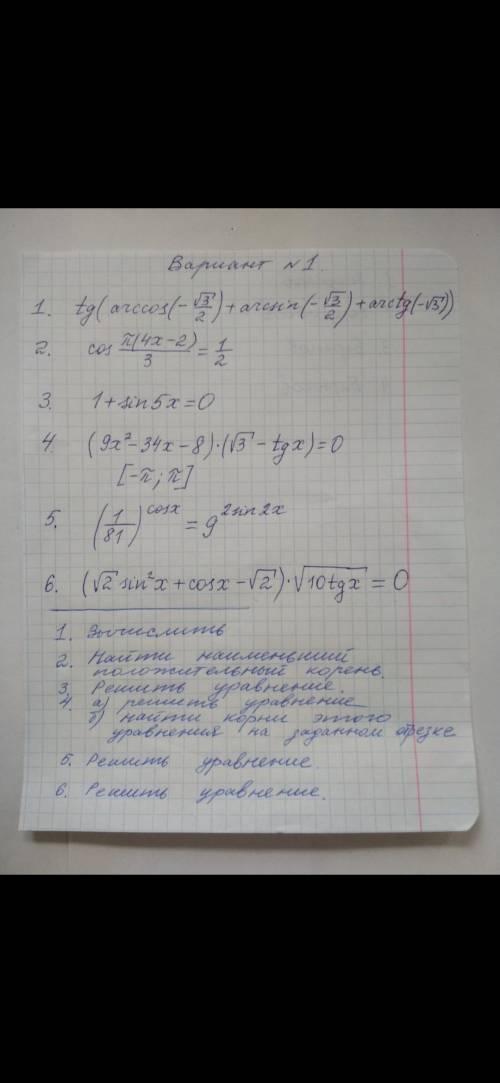 Вариант №1.
1. tg(arccos(-√3/2)+arcsin(-√3/2)+arctg(-√3))
2. cos π(4x-2)/3 = 1/2
3. 1+sin5x=0
4. (9x²-34x-8)·(√3-tgx)=0
[-π; π]
5. (1/81)^cosx = 9^2sin2x
6. (√2 sin²x+cosx-√2)·√10tgx = 0
1. Вычислить
2. Найти наименьший
положительный корень.
3. Решить уравнение.
4. а) решить уравнение
б) найти корни этого
уравнения на заданном отрезке
5. Решить уравнение.
6. Решить уравнение.